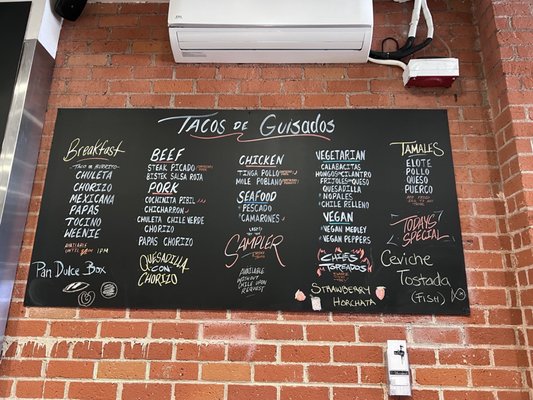 TACOS DE GUISADOS
Breakfast
TACO or BURRITO
CHULETA
CHORIZO
MEXICANA
PAPAS
TOCINO
WEENIE
AVAILABLE
1PM
Pan Dulce Box
BEEF
STEAK PICADO
BISTEK SALSA ROJA
PORK
COCHINITA PIBIL
CHICHARRON
CHULETA CHILE VERDE
CHORIZO
PAPAS CHORIZO
QUESADILLA
CON
CHORIZO
CHICKEN
TINGA POLLO
MOLE POBLANO
SEAFOOD
PESCADO
CAMARONES
SAMPLER
AVAILABLE
WITHOUT
CHILE UPON
REQUEST
VEGETARIAN
CALABACITAS
HONGOS CON CILANTRO
FRIJOLES CON QUESO
QUESADILLA
NOPALES
CHILE RELLENO
VEGAN
VEGAN MEDLEY
VEGAN PEPPERS
CHILES
TOREADOS
STRAWBERRY
HORCHATA
TAMALES
ELOTE
POLLO
QUESO
PUERCO
TODAYS
SPECIAL
Ceviche
Tostada
(FISH)